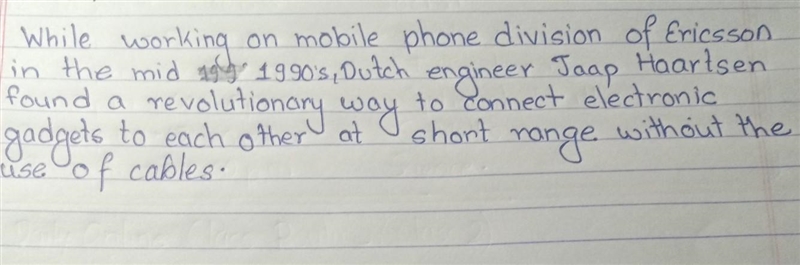 While working on mobile phone division of Ericsson
in the mid 1990's, Dutch engineer Jaap Haartsen
found a revolutionary way to connect electronic
gadgets to each other at short range without the
use of cables.